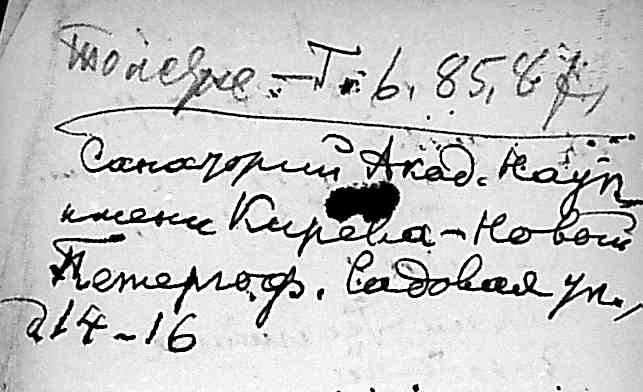 Т. 6, 85,8
Санаторий Акад. Наук
имени Кирова – Новый
Петергоф. Садовая ул.,
д 14-16